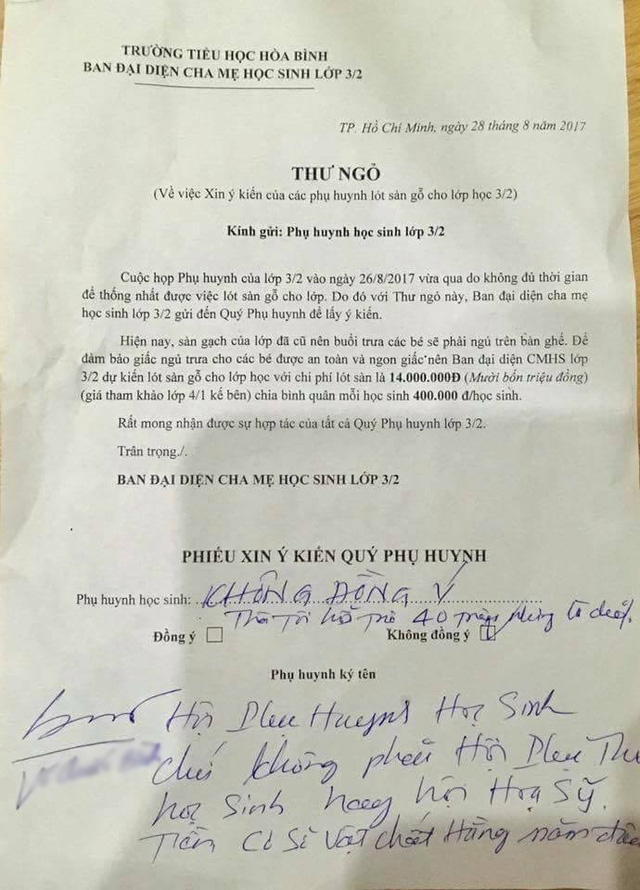 TRƯỜNG TIỂU HỌC HÒA BÌNH
BAN ĐẠI DIỆN CHA MẸ HỌC SINH LỚP 3/2
TP. Hồ Chí Minh, ngày 28 tháng 8 năm 2017
THƯ NGỎ
(Về việc Xin ý kiến của các phụ huynh lót sàn gỗ cho lớp học 3/2)
Kính gửi: Phụ huynh học sinh lớp 3/2
Cuộc họp Phụ huynh của lớp 3/2 vào ngày 26/8/2017 vừa qua do không đủ thời gian
để thống nhất được việc lót sàn gỗ cho lớp. Do đó với Thư ngỏ này, Ban đại diện cha mẹ
học sinh lớp 3/2 gửi đến Quý Phụ huynh để lấy ý kiến.
Hiện nay, sàn gạch của lớp đã cũ nên buổi trưa các bé sẽ phải ngủ trên bàn ghế. Để
đảm bảo giấc ngủ trưa cho các bé được an toàn và ngon giấc nên Ban đại diện CMHS lớp
3/2 dự kiến lót sàn gỗ cho lớp học với chi phí lót sàn là 14.000.000Đ (Mười bốn triệu đồng)
(giá tham khảo lớp 4/1 kế bên) chia bình quân mỗi học sinh 400.000 đ/học sinh.
Rất mong nhận được sự hợp tác của tất cả Quý Phụ huynh lớp 3/2.
Trân trọng./.
BAN ĐẠI DIỆN CHA MẸ HỌC SINH LỚP 3/2
PHIẾU XIN Ý KIẾN QUÝ PHỤ HUYNH
Phụ huynh học sinh: KHÔNG ĐỒNG Ý
Tôi hỗ trợ 40
Đồng ý Không đồng ý
Phụ huynh ký tên
Hội Phụ Huynh Học Sinh
chứ không phải Hội Phụ Thu
học Sinh hay hội Hoạ Sỹ.
Tiền Cơ Sở Vật chất Hằng năm đâu